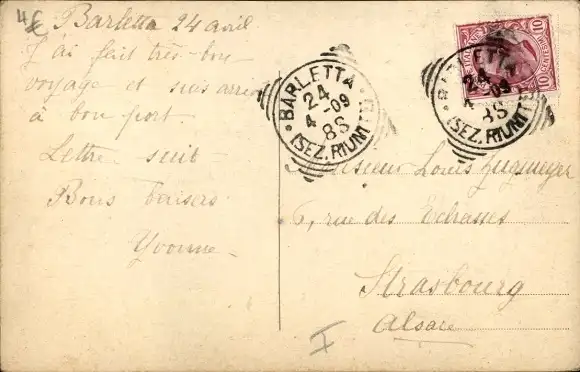 4€
Barletta 24 avril
J'ai fait très bon
voyage et suis arrivée
à bon port.
Lettre suit
Bons baisers
Yvonne
BARLETTA
24
4 - 09
8S
(SEZ. RIUNITE)
BARLETTA
24
4 - 09
8S
(SEZ. RIUNITE)
10 10
Monsieur Louis Zugmeyer
6, rue des Echasses
Strasbourg
Alsace
I